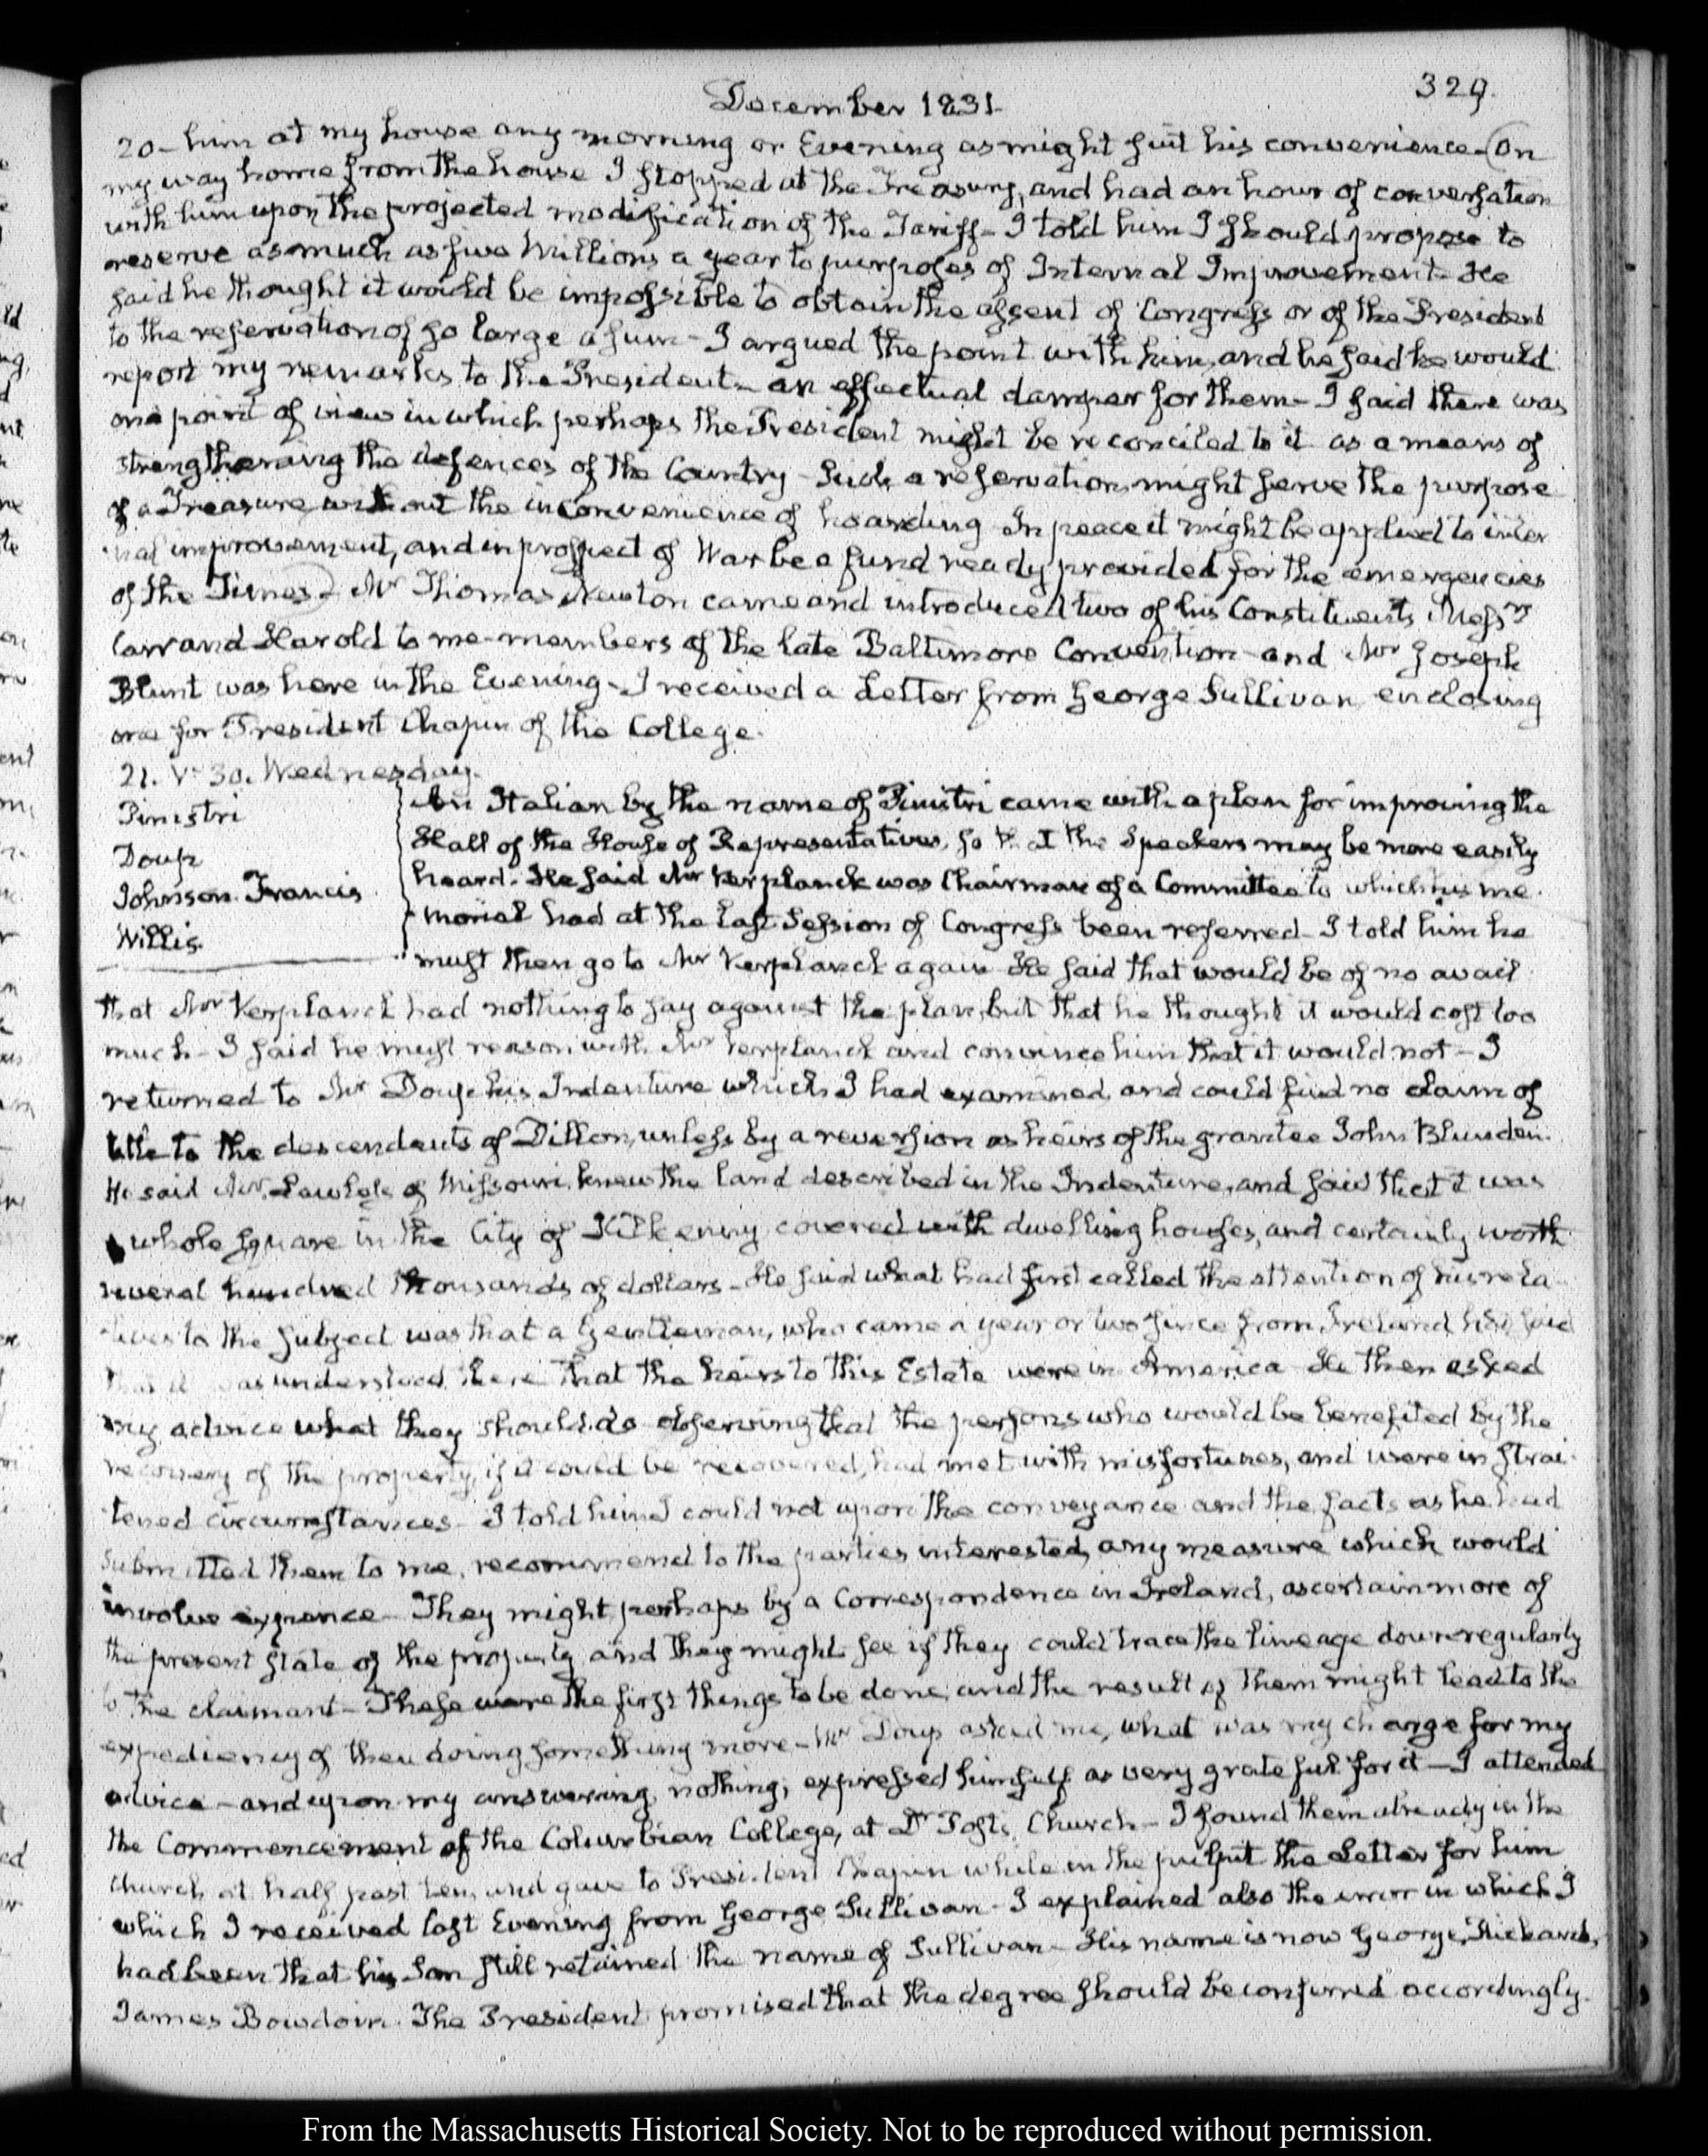 329.
December 1831
20– him at my house any morning or Evening as might suit his convenience– On
my way home from the house I stopped at the Treasury, and had an hour of conversation
with him upon the projected modification of the Tariff– I told him I should propose to
reserve as much as five Millions a year to purposes of Internal Improvement– He
said he thought it would be impossible to obtain the assent of Congress or of the President
to the reservation of so large a sum– I argued the point with him, and he said he would
report my remarks to the President– an effectual damper for them– I said there was
one point of view in which perhaps the President might be reconciled to it as a means of
strengthening the defences of the Country– Such a reservation might serve the purpose
of a Treasure without the inconvenience of hoarding– In peace it might be applied to inter
nal improvement, and in prospect of War be a fund ready provided for the emergencies
of the Times– Mr Thomas Newton came and introduced two of his Constituents Messrs
Carr and Harold to me– members of the late Baltimore Convention– and Mr Joseph
Blunt was here in the Evening– I received a Letter from George Sullivan, enclosing
one for President Chapin of the College.
21. V. 30. Wednesday.
Pinistri
Doup
Johnson. Francis
Willis.
An Italian by the name of Pinistri came with a plan for improving the
Hall of the House of Representatives, so that the Speakers may be more easily
heard. He said Mr Verplanck was Chairman of a Committee to which his me
morial had at the last Session of Congress been referred– I told him he
must then go to Mr Verplanck again– He said that would be of no avail
that Mr Verplanck had nothing to say against the plan, but that he thought it would cost too
much– I said he must reason with Mr Verplanck and convince him that it would not– I
returned to Mr Doup his Indenture which I had examined, and could find no claim of
title to the descendants of Dillon, unless by a reversion as heirs of the grantee John Blunden.
He said Mr. Lawless of Missouri, knew the land described in the Indenture, and said that it was
a whole square in the City of Kilkenny covered with dwelling houses, and certainly worth
several hundred thousands of dollars– He said what had first called the attention of his rela
tives to the subject was that a Gentleman, who came a year or two since from Ireland had said
that it was understood there that the heirs to this Estate were in America– He then asked
my advice what they should do– observing that the persons who would be benefited by the
recovery of the property, if it could be recovered, had met with misfortunes, and were in strai
tened circumstances– I told him I could not upon the conveyance and the facts as he had
submitted them to me, recommend to the parties interested, any measure which would
involve expence– They might perhaps by a Correspondence in Ireland, ascertain more of
the present state of the property and they might see if they could trace the lineage down regularly
to the claimant– These were the first things to be done, and the result of them might lead to the
expediency of their doing something more– Mr Doup asked me, what was my charge for my
advice– and upon my answering, nothing; expressed himself as very grateful for it– I attended
the Commencement of the Columbian College, at Dr Post's Church– I found them already in the
church at half past ten, and gave to President Chapin while in the pulpit the Letter for him
which I received last Evening from George Sullivan– I explained also the error in which I
had been that his Son still retained the name of Sullivan– His name is now George, Richards,
James Bowdoin. The President promised that the degree should be conferred accordingly.
From the Massachusetts Historical Society. Not to be reproduced without permission.